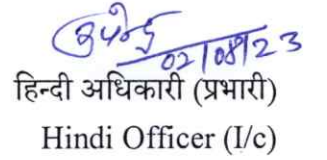 उपेन्द्र
02/08/23
हिन्दी अधिकारी (प्रभारी)
Hindi Officer (I/c)